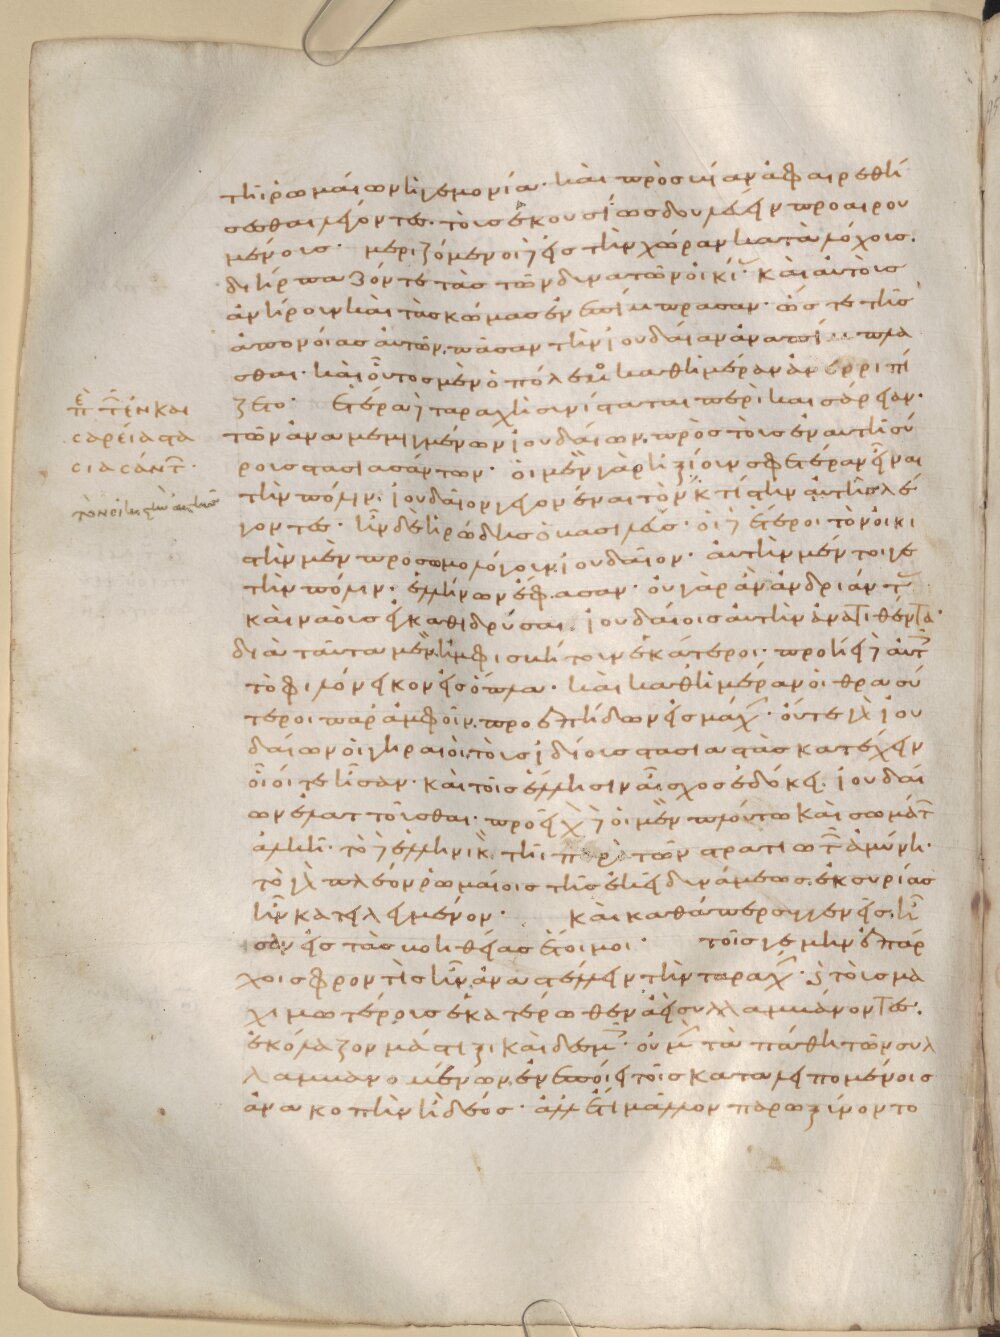 τῆ ρωμαίων ἡγεμονία· καὶ πρὸς βίαν ἀφαιρεθή
σεσθαι λέγοντες· τοὺς ἑκουσίως δουλεύειν προαιρου
μένους· μεριζόμενοι δ εἰς τὴν χώραν κατὰ λόχους·
διήρπαζόν τε τὰς τῶν δυνατῶν οἰκί· καὶ αὐτοὺς
ἀνήρουν καὶ τὰς κώμας ἐνεπίμπρασαν· ὥστε τῆς
ἀπονοίας αὐτῶν πᾶσαν τὴν ἰουδαίαν ἀναπίμπλα
σθαι· καὶ οὗτος μὲν ὁ πόλεμος καθημέραν ἀνερριπί
ζετο· ἑτέρα δ ταραχὴ συνίσταται περὶ καισάρειαν·
τῶν ἀναμεμιγμένων ἰουδαίων πρὸς τοὺς ἐν αυτῆ σύ
ρους στασιασάντων· οἱ μὲν γὰρ ἠξίουν σφετέραν εἶναι
τὴν πόλιν· ἰουδαῖον γεγονέναι τὸν κτίστην αὐτῆς λέ
γοντες· ἦν δὲ ἡρώδης ὁ βασιλεύς· οἱ δ ἕτεροι τὸν οἰκι
στὴν μὲν προσωμολόγουν ἰουδαῖον· αὐτὴν μέντοι γε
τὴν πόλιν· ἑλλήνων ἔφασαν· οὐ γὰρ ἂν ἀνδριάντ
καὶ ναοὺς ἐγκαθιδρύσαι· ἰουδαίοις αὐτὴν ἀνατιθέντα·
διὰ ταῦτα μὲν ἠμφισβήτουν ἑκάτεροι· προήει δ αὐτ
τὸ φιλόνεικον εἰς ὅπλα· καὶ καθημέραν οἱ θρασύ
τεροι παρ ἀμφοῖν προεπήδων εἰς μάχ· οὔτε γὰρ ἰου
δαίων οἱ γηραιοὶ τοὺς ἰδίους στασιαστὰς κατέχειν
οἷοί τε ἦσαν· καὶ τοῖς ἕλλησιν αἶσχος ἐδόκει· ἰουδαί
ων ἐλαττοῦσθαι· προεῖχ δ οἱ μὲν πλούτω καὶ σωμάτ
ἀλκῆ· τὸ δ ἑλληνικ τῆ παρὰ τῶν στρατιωτ ἀμύνη·
τὸ γὰρ πλέον ρωμαίοις τῆς ἐκεῖ δυνάμεως ἐκ συρίας
ἦν κατειλεγμένον· καὶ καθάπερ συγγενεῖς ἦ
σαν εἰς τὰς βοηθείας ἕτοιμοι· τοῖς γε μὴν ἐπάρ
χοις φροντὶς ἦν ἀναστέλλειν τὴν ταραχ· καὶ τοὺς μα
χιμωτέρους ἑκατέρωθεν ἀεὶ συλλαμβάνοντες·
ἐκόλαζον μάστιξι καὶ δεσμ· οὐ μὴν τὰ πάθη τῶν συλ
λαμβανομένων ἐνεποίει τοῖς καταλειπομένοις
ἀνακοπὴν ἢ δέος· ἀλλ ἔτι μᾶλλον παρωξύνοντο
ἐπ τ ἐν και
σαρεία στα
σιασάντ·